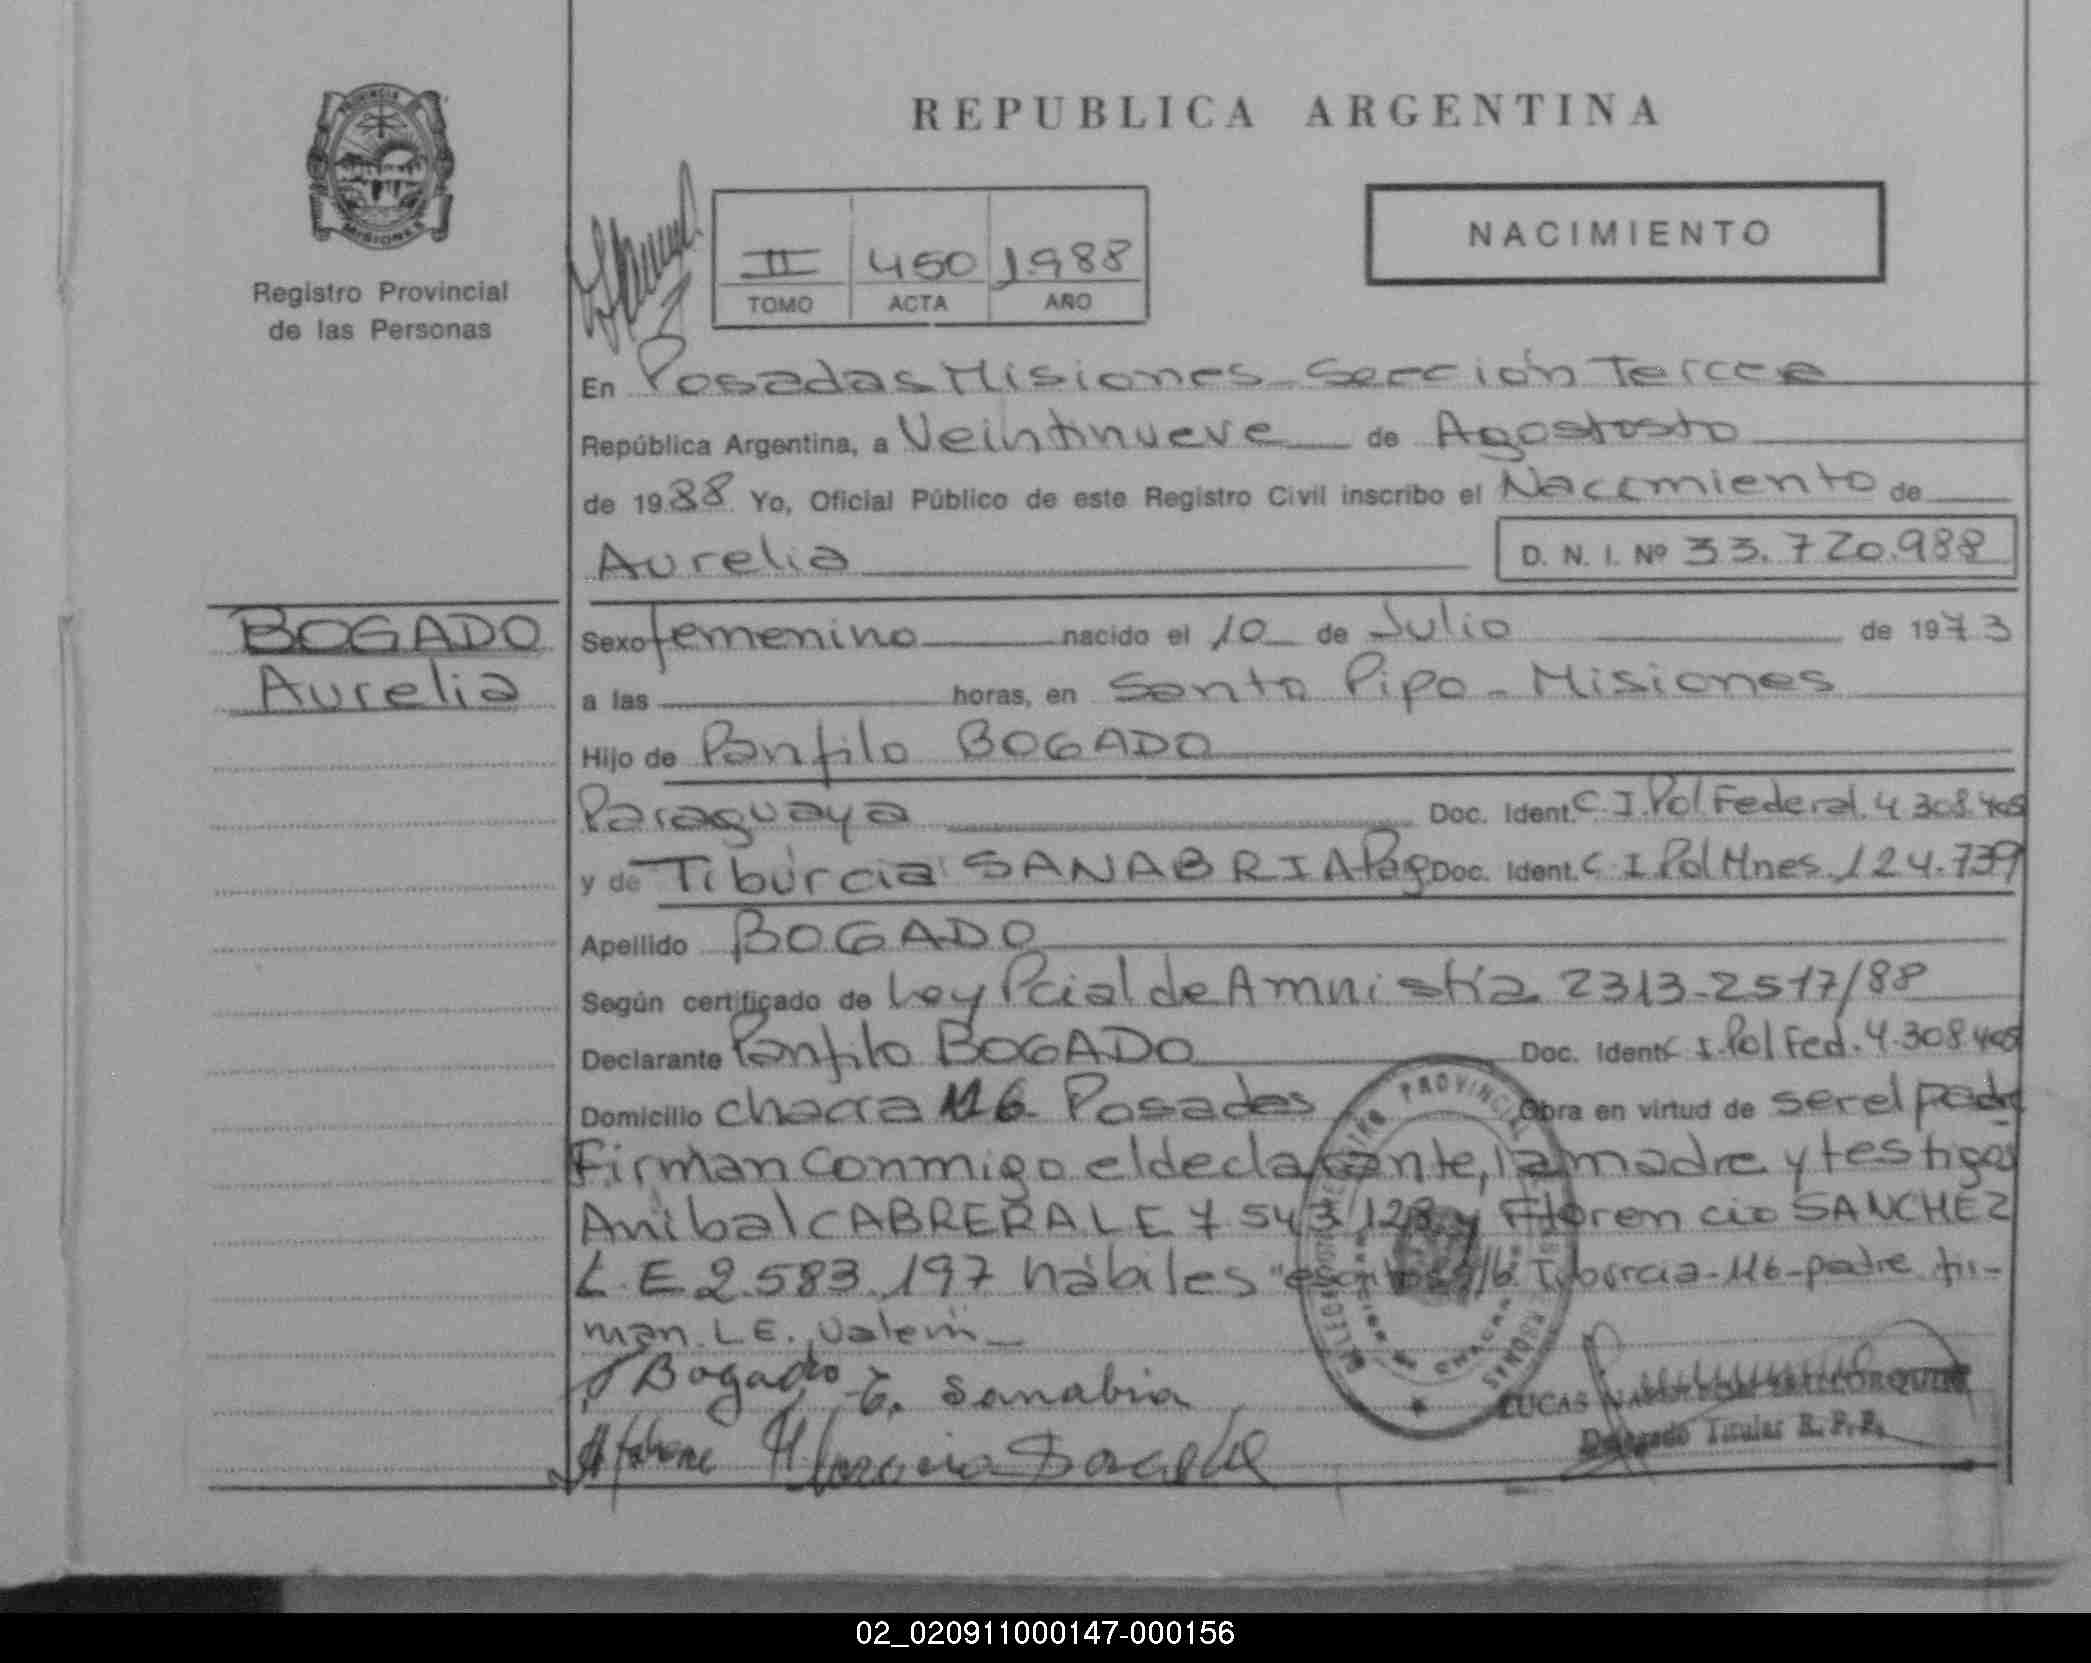 PROVINCIA
MISIONES
Registro Provincial
de las Personas
REPUBLICA ARGENTINA
II 450 1988
TOMO ACTA AÑO
NACIMIENTO
En Posadas Misiones Sección Tercera
República Argentina, a Veintinueve de Agostosto
de 1988 Yo, Oficial Público de este Registro Civil inscribo el Naccmiento de
Aurelia D. N. I. Nº 33.720.988
BOGADO
Aurelia
Sexo femenino nacido el 10 de Julio de 1973
a las horas, en Santo Pipo - Misiones
Hijo de Panfilo BOGADO
Paraguaya Doc. Ident. C. I. Pol. Federal. 4.308.405
y de Tiburcia SANABRIA Pag Doc. Ident. C. I. Pol Mnes. 124.739
Apellido BOGADO
Según certificado de Ley Pcial de Amnistía 2313-2517/88
Declarante Panfilo BOGADO Doc. Ident C I. Pol Fed. 4.308.405
Domicilio chacra 116 Posadas Obra en virtud de ser el padre
Firman conmigo el declarante, la madre y testigos
Anibal CABRERA L E 7.543.128 y Florencio SANCHEZ
L. E 2.583.197 hábiles Tiburcia-116-padre fir-
man. L.E. Valen
Bogado T. Sanabria
LUCAS
Delegado Titular R. P. P.
02_020911000147-000156